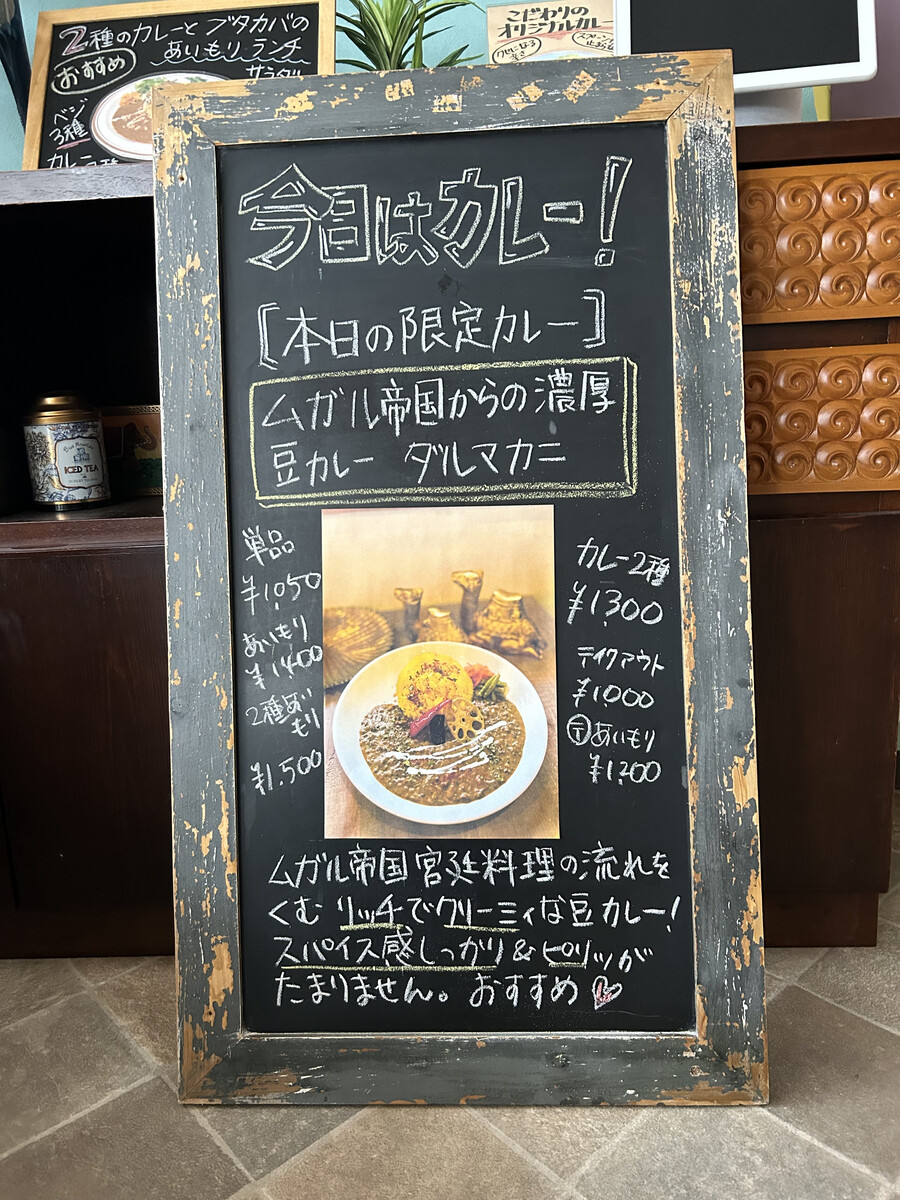 2種のカレーと ブタカバの
あいもりランチ
おすすめ
サラダ
ベジ
3種
カレー
こだわりの
オリジナルカレー
ICED TEA
今日はカレー!
[本日の限定カレー]
ムガル帝国からの濃厚
豆カレー ダルマカニ
単品
¥1,050
あいもり
¥1400
2種あい
もり
¥1,500
カレー2種
¥1300
テイクアウト
¥1000
Ⓣあいもり
¥1200
ムガル帝国宮廷料理の流れを
くむ リッチでクリーミィな豆カレー!
スパイス感しっかり&ピリッが
たまりません。おすすめ♡